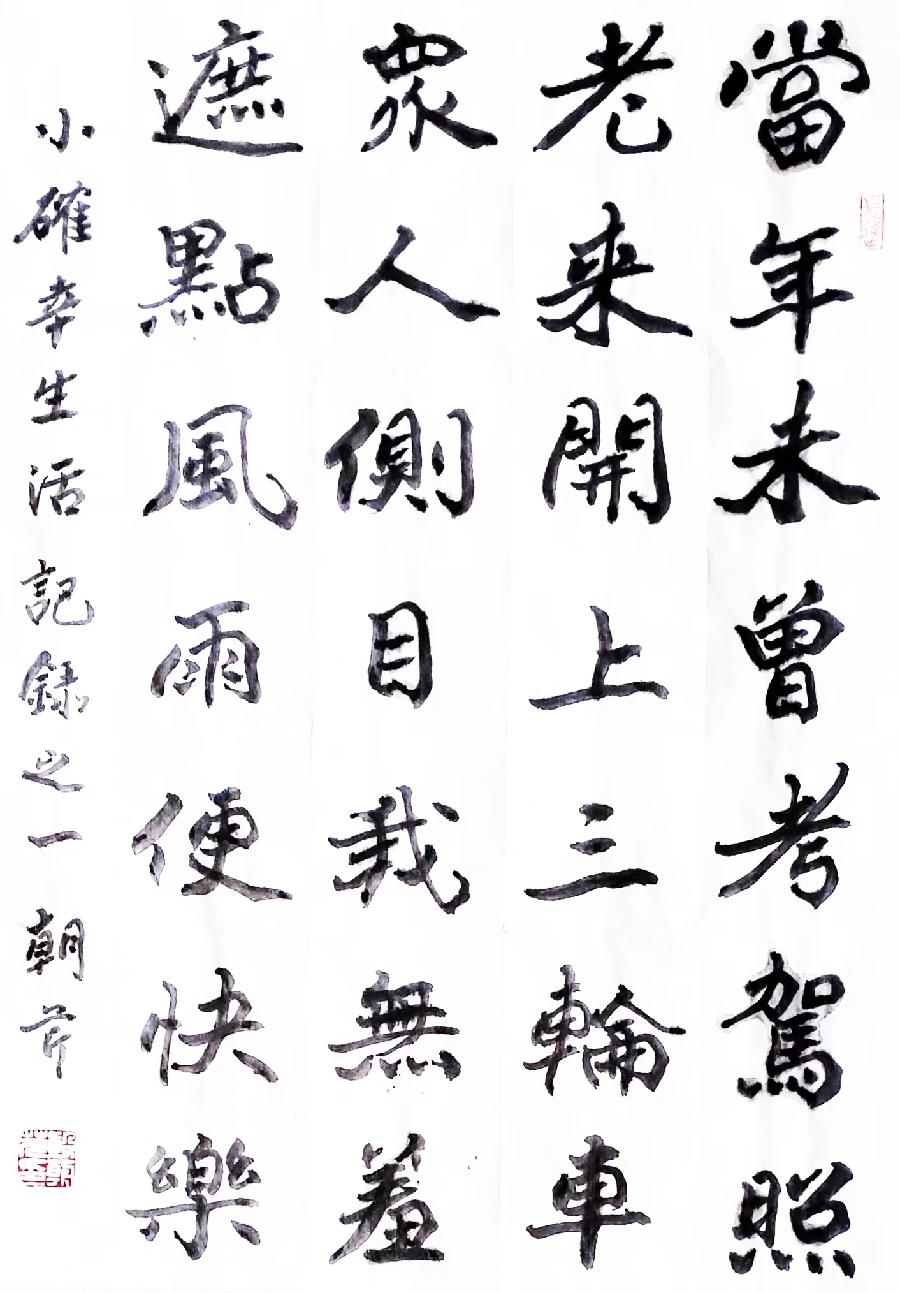 當年未曾考駕照
老来開上三輪車
眾人側目我無羞
遮點風雨便快樂
小確幸生活記録之一朝芹